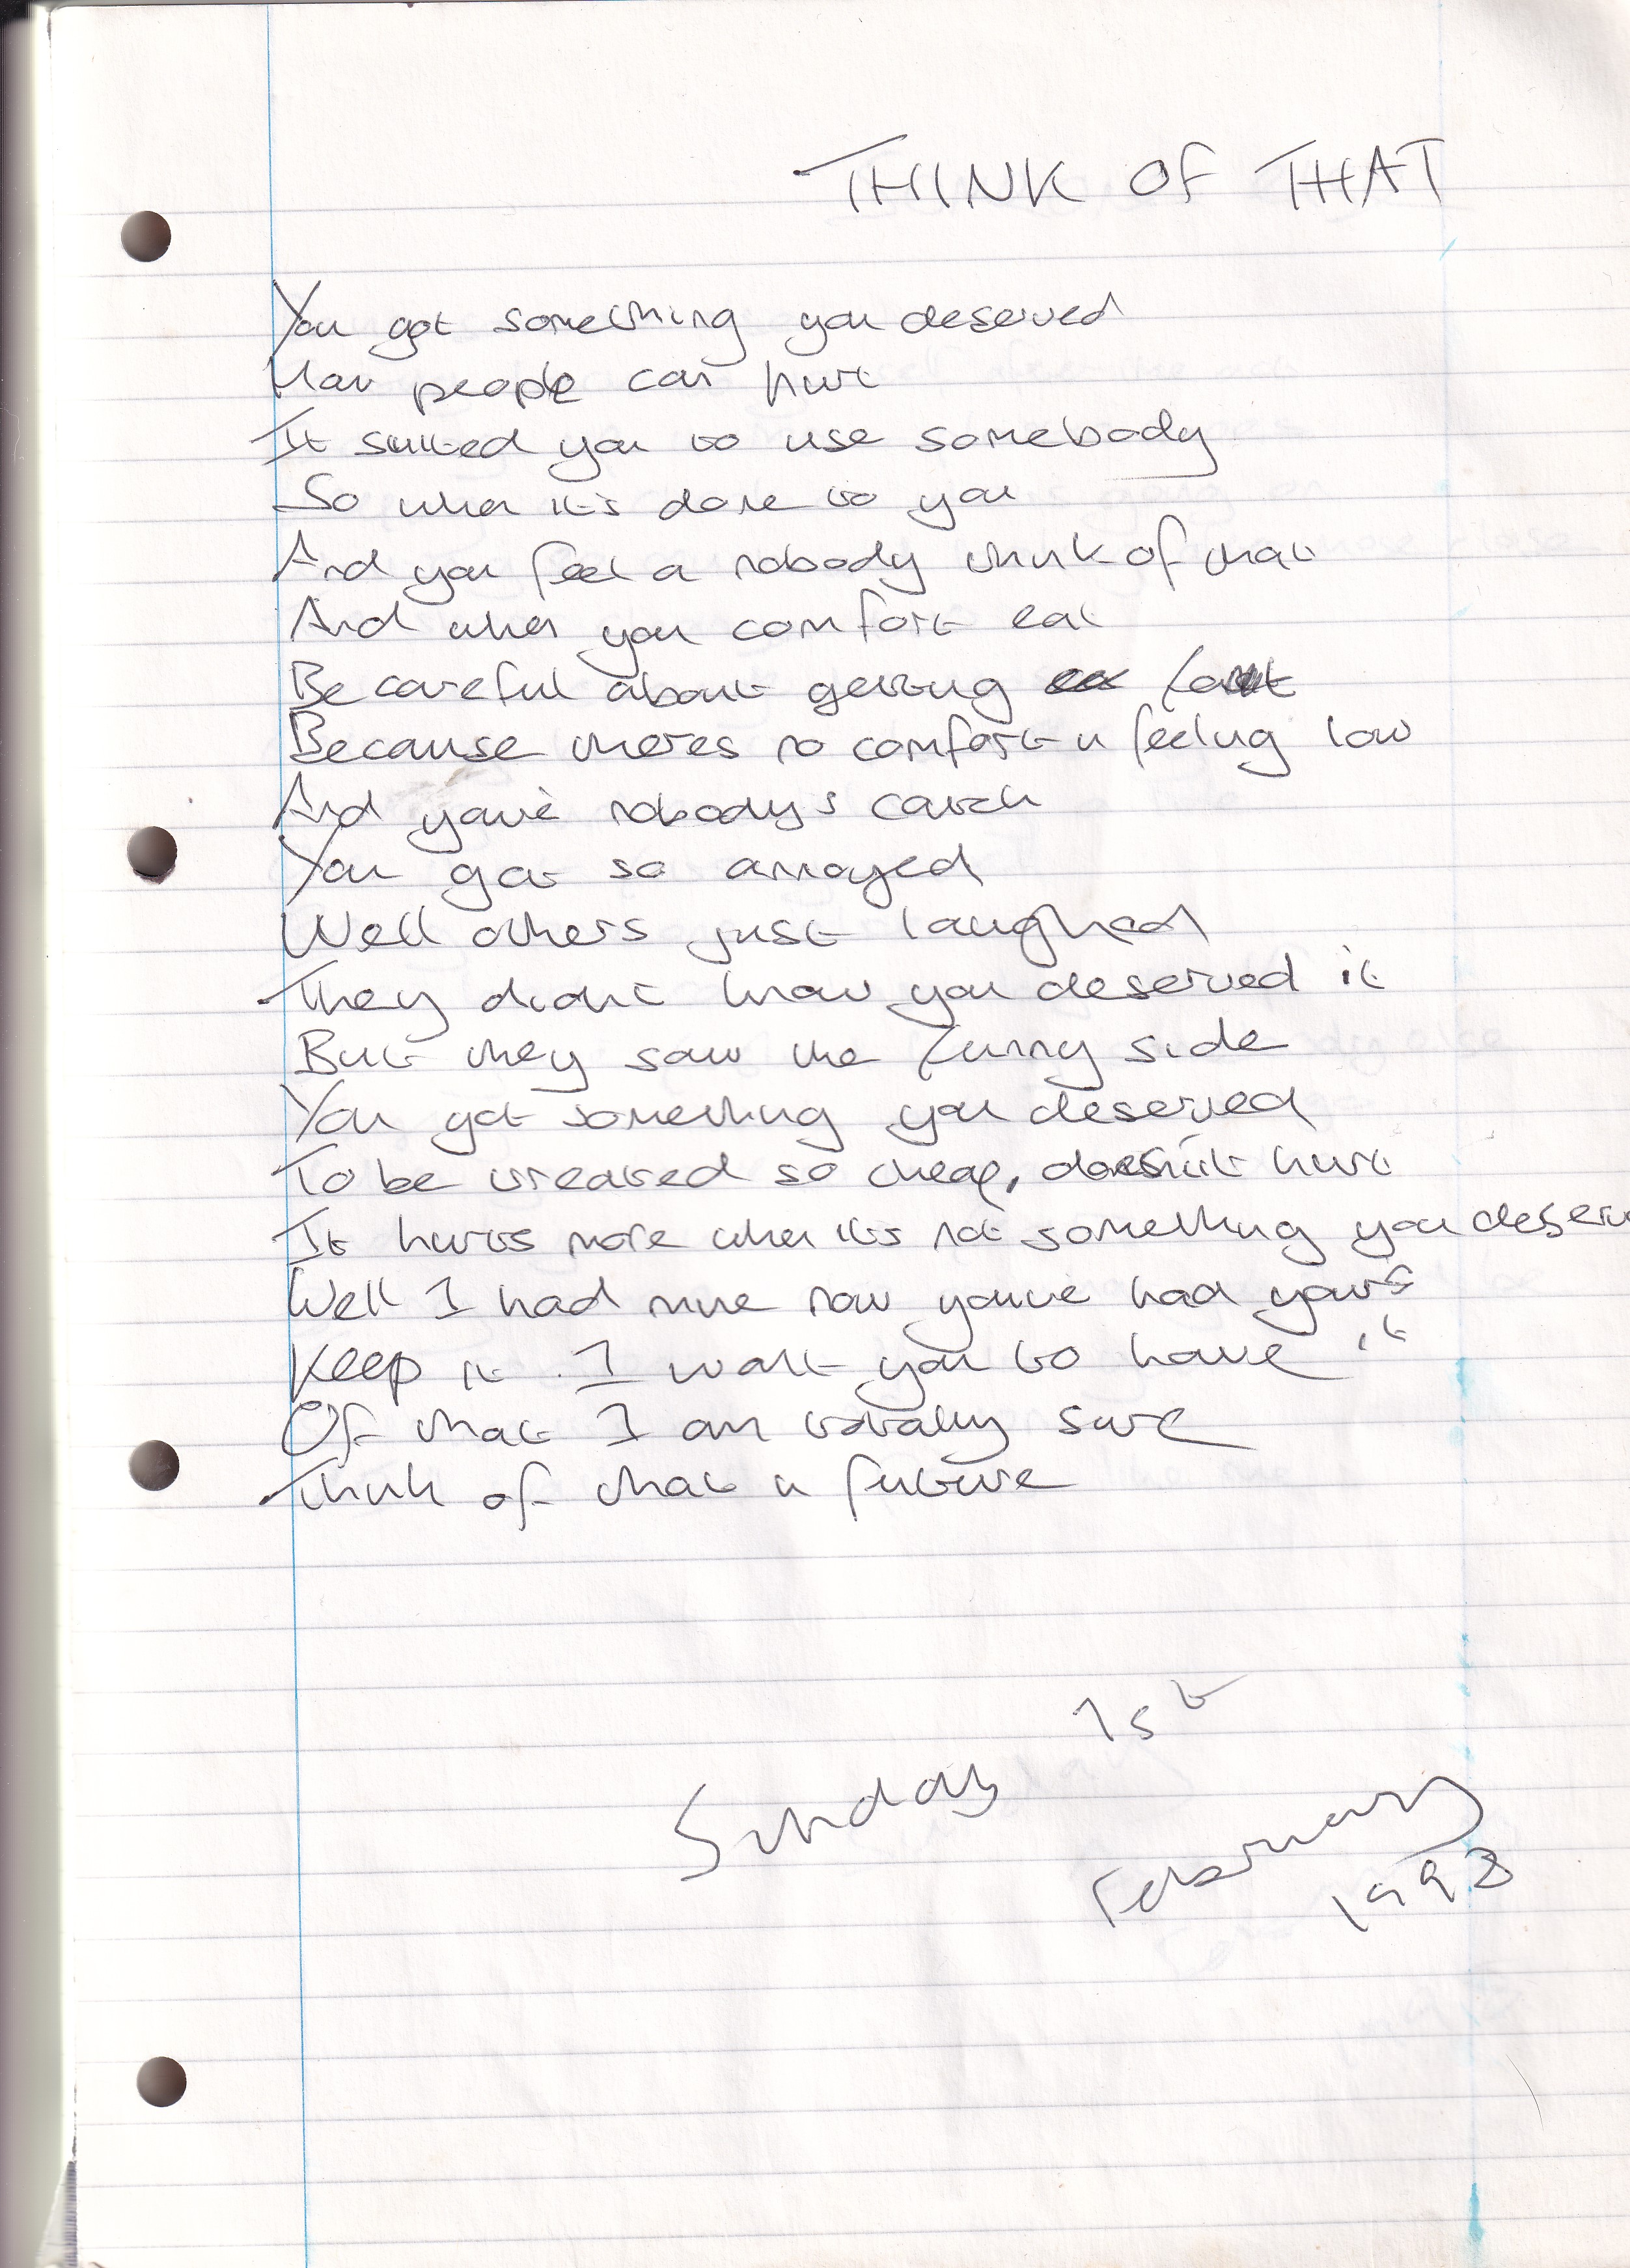 THINK OF THAT
You got something you deserved
How people can hurt
It suited you to use somebody
So when it's done to you
And you feel a nobody think of that
And when you comfort eat
Be careful about getting fat
Because theres no comfort in feeling low
And you're nobody's catch
You got so annoyed
Well others just laughed
They didnt know you deserved it
But they saw the funny side
You got something you deserved
To be treated so cheap, doesn't hurt
It hurts more when its not something you deserv
Well I had mine now you've had yours
Keep it I want you to have it
Of that I am totally sure
Think of that in future
Sunday 1st
February
1998